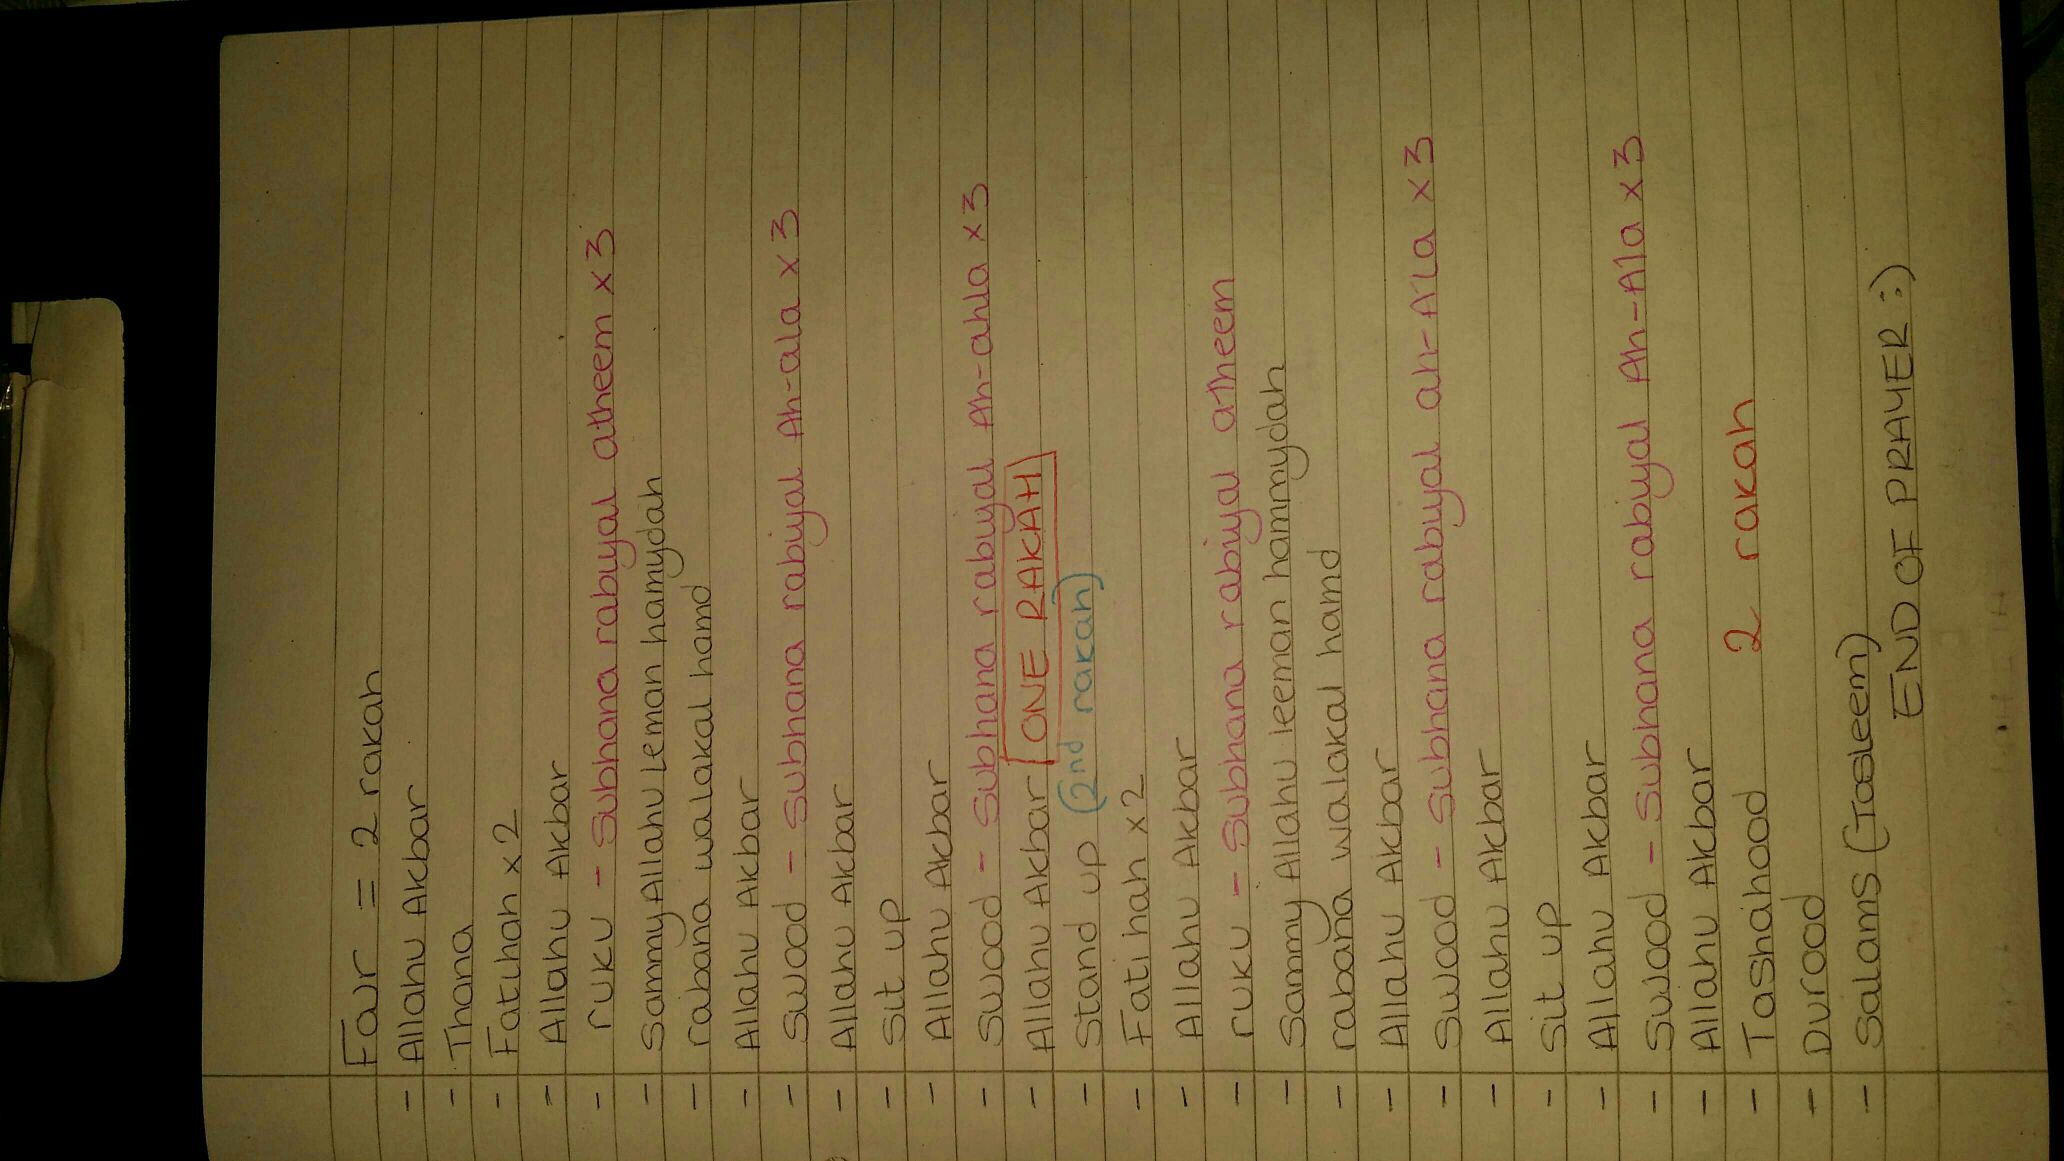 Fajr = 2 rakah
- Allahu Akbar
- Thana
- Fatihah x2
- Allahu Akbar
- ruku - Subhana rabiyal atheem x3
- Sammy Allahu Leman hamydah
- rabana walakal hamd
- Allahu Akbar
- Sujood - Subhana rabiyal Ah-ala x3
- Allahu Akbar
- Sit up
- Allahu Akbar
- Sujood - Subhana rabiyal Ah-ahla x3
- Allahu Akbar ONE RAKAH
- Stand up (2nd rakah)
- Fatihah x2
- Allahu Akbar
- ruku - Subhana rabiyal atheem
- Sammy Allahu leeman hammydah
- rabana walakal hamd
- Allahu Akbar
- Sujood - Subhana rabiyal ah-A'la x3
- Allahu Akbar
- Sit up
- Allahu Akbar
- Sujood - Subhana rabiyal Ah-A1a x3
- Allahu Akbar
- Tashahood 2 rakah
- Durood
- Salams (Tasleem)
END OF PRAYER :)